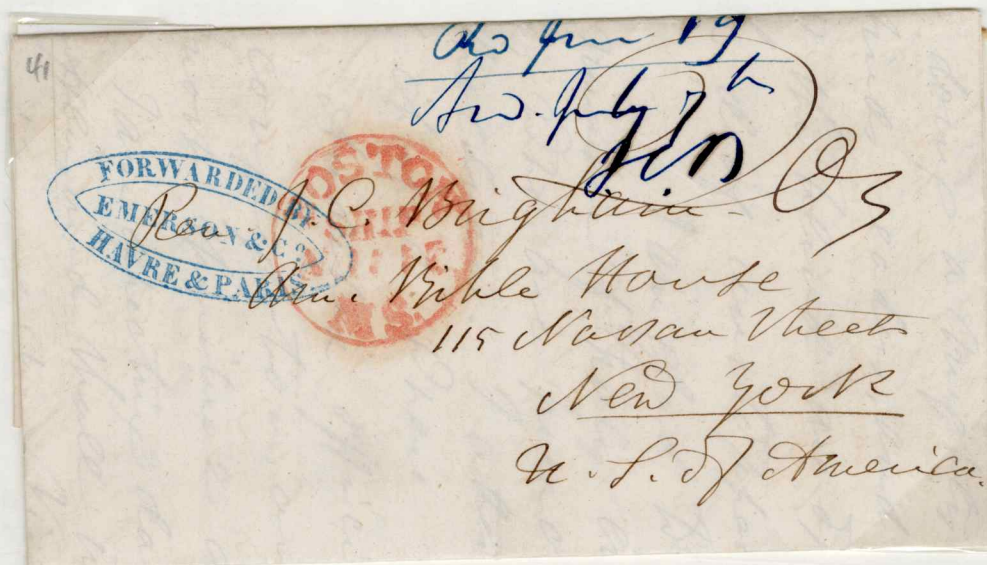 41
Jun 19
July 7th
FORWARDED BY
EMERSON & Co.
HAVRE & PARIS
BOSTON
SHIP
MS.
Rev. J. C. Brigham
Am. Bible House
115 Nassau Street
New York
U. S. of America.